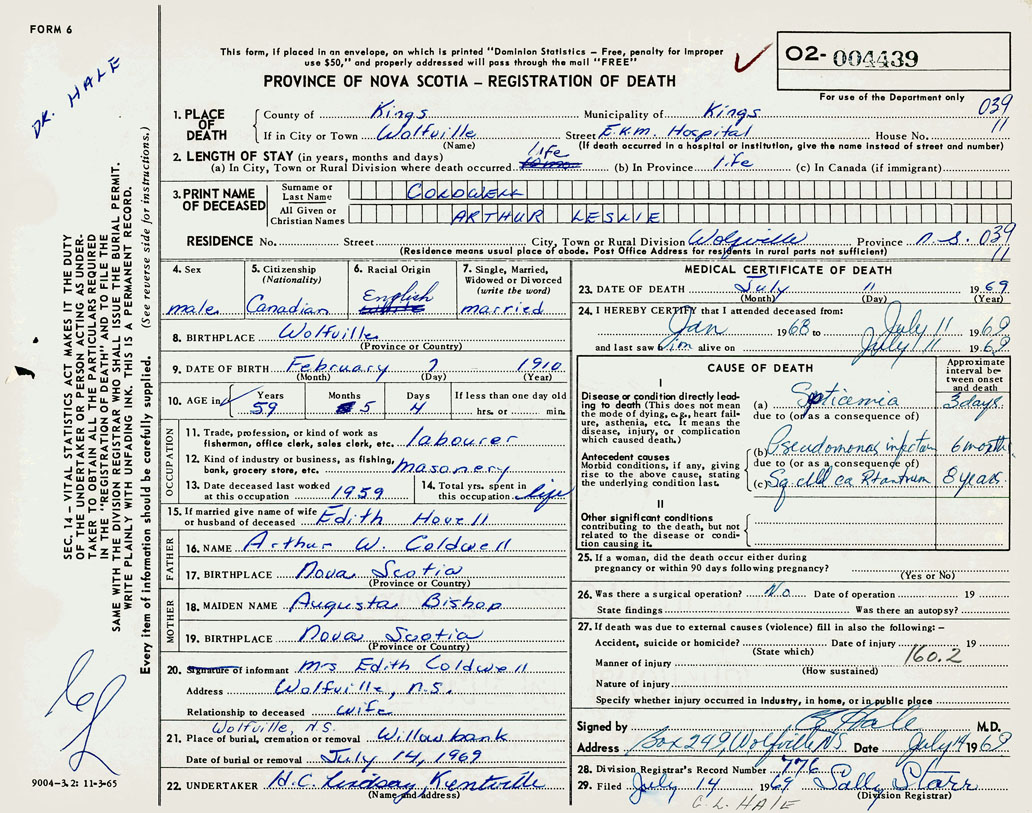 FORM 6
DR. HALE
SEC. 14 – VITAL STATISTICS ACT MAKES IT THE DUTY
OF THE UNDERTAKER OR PERSON ACTING AS UNDER-
TAKER TO OBTAIN ALL THE PARTICULARS REQUIRED
IN THE "REGISTRATION OF DEATH" AND TO FILE THE
SAME WITH THE DIVISION REGISTRAR WHO SHALL ISSUE THE BURIAL PERMIT.
WRITE PLAINLY WITH UNFADING INK. THIS IS A PERMANENT RECORD.
Every item of information should be carefully supplied. (See reverse side for instructions.)
9004–3.2: 11-3-65
This form, if placed in an envelope, on which is printed "Dominion Statistics – Free, penalty for improper
use $50," and properly addressed will pass through the mail "FREE"
PROVINCE OF NOVA SCOTIA – REGISTRATION OF DEATH
02- 004439
For use of the Department only
039
11
1. PLACE OF DEATH
County of Kings Municipality of Kings
If in City or Town Wolfville Street E.K.M. Hospital House No.
(Name) (If death occurred in a hospital or institution, give the name instead of street and number)
2. LENGTH OF STAY (in years, months and days) life
(a) In City, Town or Rural Division where death occurred (b) In Province life (c) In Canada (if immigrant)
3. PRINT NAME OF DECEASED
Surname or Last Name COLDWELL
All Given or Christian Names ARTHUR LESLIE
RESIDENCE No. Street City, Town or Rural Division Wolfville Province N.S. 039
(Residence means usual place of abode. Post Office Address for residents in rural parts not sufficient) 11
4. Sex male
5. Citizenship (Nationality) Canadian
6. Racial Origin English
7. Single, Married, Widowed or Divorced (write the word) married
8. BIRTHPLACE Wolfville
(Province or Country)
9. DATE OF BIRTH February 7 1910
(Month) (Day) (Year)
10. AGE in Years Months Days If less than one day old
59 5 4 hrs. or min.
OCCUPATION
11. Trade, profession, or kind of work as
fisherman, office clerk, sales clerk, etc. labourer
12. Kind of industry or business, as fishing,
bank, grocery store, etc. masonery
13. Date deceased last worked
at this occupation 1959
14. Total yrs. spent in
this occupation life
15. If married give name of wife
or husband of deceased Edith
FATHER
16. NAME Arthur W. Coldwell
17. BIRTHPLACE Nova Scotia
(Province or Country)
MOTHER
18. MAIDEN NAME Augusta Bishop
19. BIRTHPLACE Nova Scotia
(Province or Country)
20. Signature of informant Mrs Edith Coldwell
Address Wolfville, N.S.
Relationship to deceased wife
Wolfville, N.S.
21. Place of burial, cremation or removal Willowbank
Date of burial or removal July 14, 1969
22. UNDERTAKER H.C. Lindsay, Kentville
(Name and address)
MEDICAL CERTIFICATE OF DEATH
23. DATE OF DEATH July 11 1969
(Month) (Day) (Year)
24. I HEREBY CERTIFY that I attended deceased from:
Jan 1968 to July 11 1969
and last saw him alive on July 11 1969
CAUSE OF DEATH
Approximate interval between onset and death
I
Disease or condition directly lead-
ing to death (This does not mean
the mode of dying, e.g., heart fail-
ure, asthenia, etc. It means the
disease, injury, or complication
which caused death.)
(a) Septicemia 3 days
due to (or as a consequence of)
(b) Pseudomonas infection 6 months
Antecedent causes
Morbid conditions, if any, giving
rise to the above cause, stating
the underlying condition last.
due to (or as a consequence of)
(c) Sq. cell ca Rt antrum 8 years
II
Other significant conditions
contributing to the death, but not
related to the disease or condi-
tion causing it.
25. If a woman, did the death occur either during
pregnancy or within 90 days following pregnancy?
(Yes or No)
26. Was there a surgical operation? No Date of operation 19
State findings Was there an autopsy?
27. If death was due to external causes (violence) fill in also the following: –
Accident, suicide or homicide? Date of injury 19
(State which) 160.2
Manner of injury
(How sustained)
Nature of injury
Specify whether injury occurred in Industry, in home, or in public place
Signed by Hale M.D.
Address Box 249, Wolfville NS Date July 14 1969
28. Division Registrar's Record Number 776
29. Filed July 14 1969 Sally Starr
(Division Registrar)
C.L. HALE